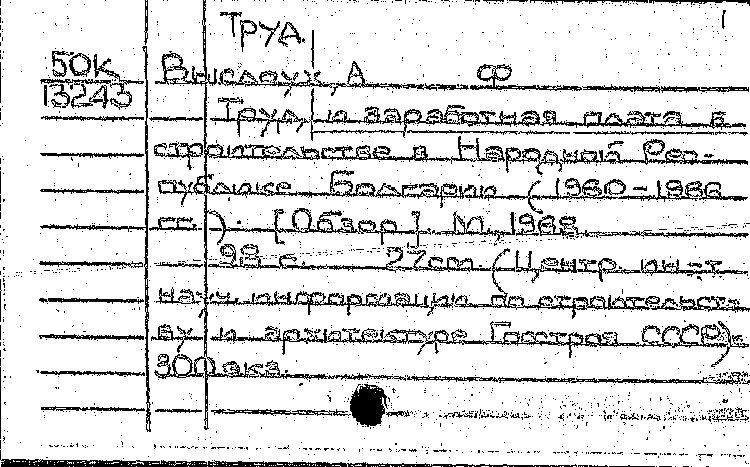 Труд
50К Выслоух, А Ф
13243 Труд и заработная плата в
строительстве в Народной Рес-
публике Болгарии (1960-1966
гг.). [Обзор]. М., 1968.
98 с. 27cm (Центр. ин-т
науч. информации по строительст-
ву и архитектуре Госстроя СССР).
300 экз.